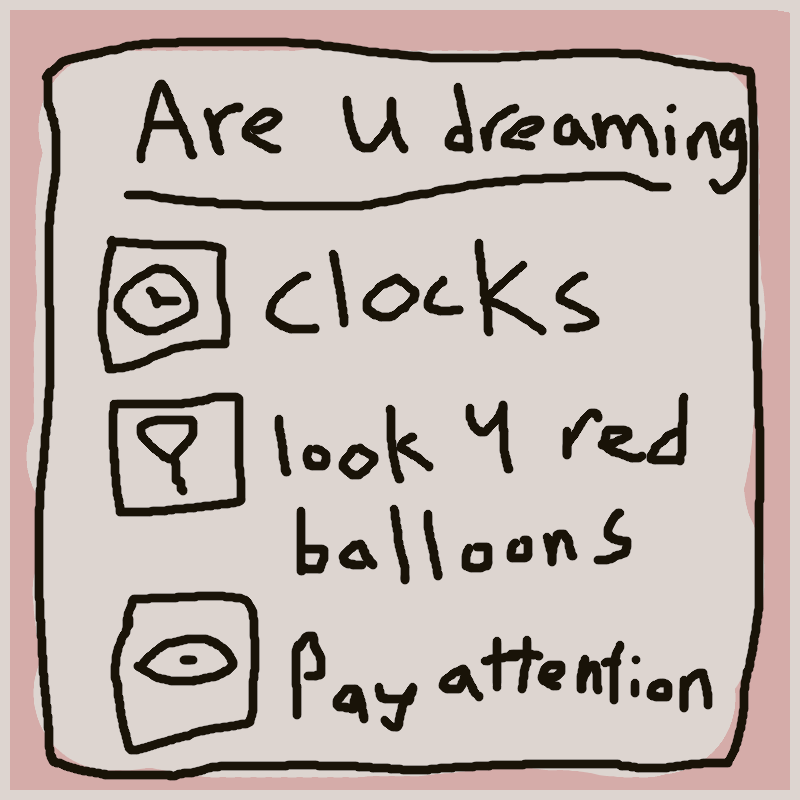 Are U dreaming
clocks
look 4 red
balloons
Pay attention